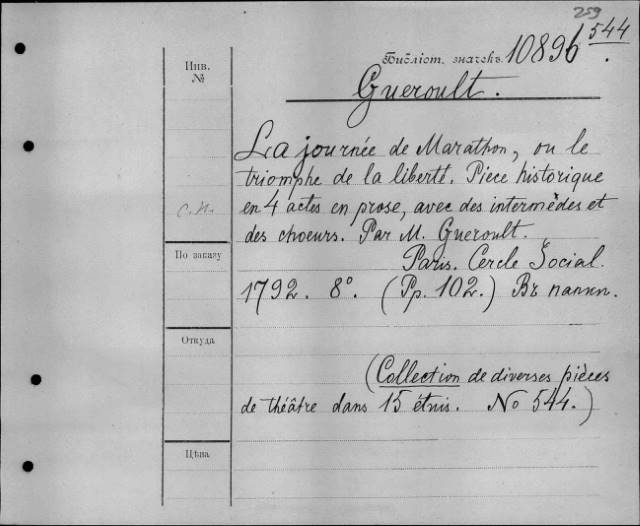 259
Библіот. значекъ 10896 544.
Инв.
№
Gueroult.
La journée de Marathon, ou le
triomphe de la liberté. Piece historique
en 4 actes en prose, avec des intermèdes et
des choeurs. Par M. Gueroult.
По заказу
Paris. Cercle Social.
1792. 8°. (Pp. 102.) Въ папкѣ.
Откуда
(Collection de diverses pièces
de théâtre dans 15 étuis. No 544.)
Цѣна